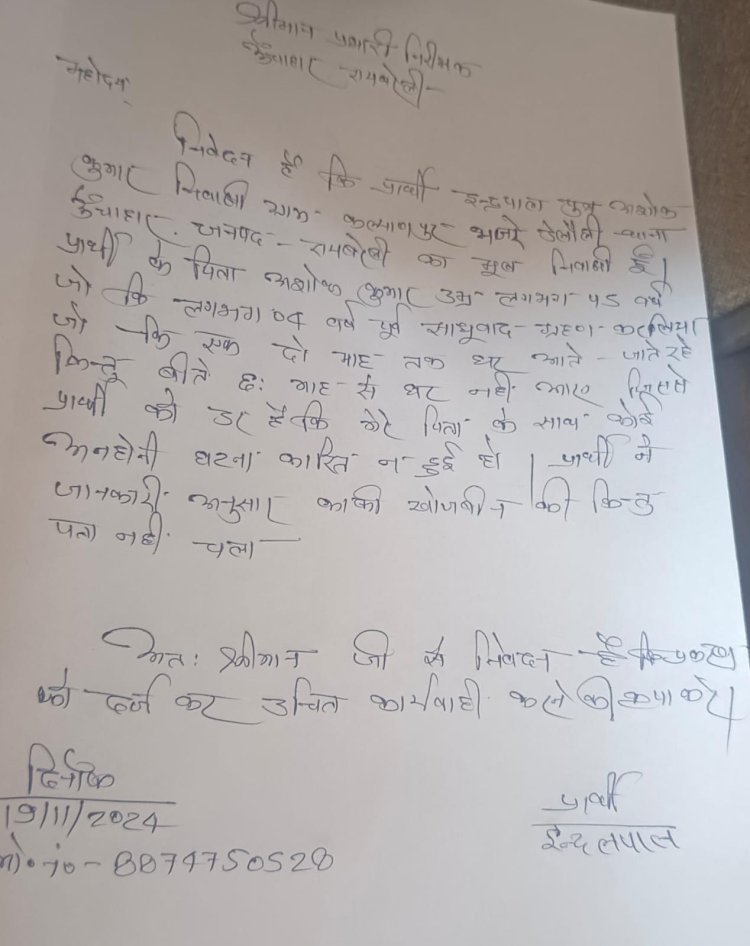 श्रीमान प्रभारी निरीक्षक
ऊँचाहार रायबरेली-
महोदय,
निवेदन है कि प्रार्थी इन्द्रपाल पुत्र अशोक
कुमार निवासी ग्राम- कल्यानपुर मजरे थाना
ऊँचाहार. जनपद- रायबरेली का मूल निवासी है।
प्रार्थी के पिता अशोक कुमार उम्र लगभग 45 वर्ष
जो कि लगभग 04 वर्ष पूर्व साधूवाद- ग्रहण कर लिया
जो कि एक दो माह तक घर आते - जाते रहे
किन्तु बीते छः माह से घर नहीं आए जिससे
प्रार्थी को डर है कि मेरे पिता के साथ कोई
अनहोनी घटना कारित न हुई हो। प्रार्थी ने
जानकारी अनुसार काफी खोजबीन की किन्तु
पता नहीं चला-
अतः श्रीमान जी से निवेदन है कि प्रकरण
को दर्ज कर उचित कार्यवाही करने की कृपा करें।
दिनाँक
19/11/2024
मो०नं०- 8874750528
प्रार्थी
इन्दलपाल